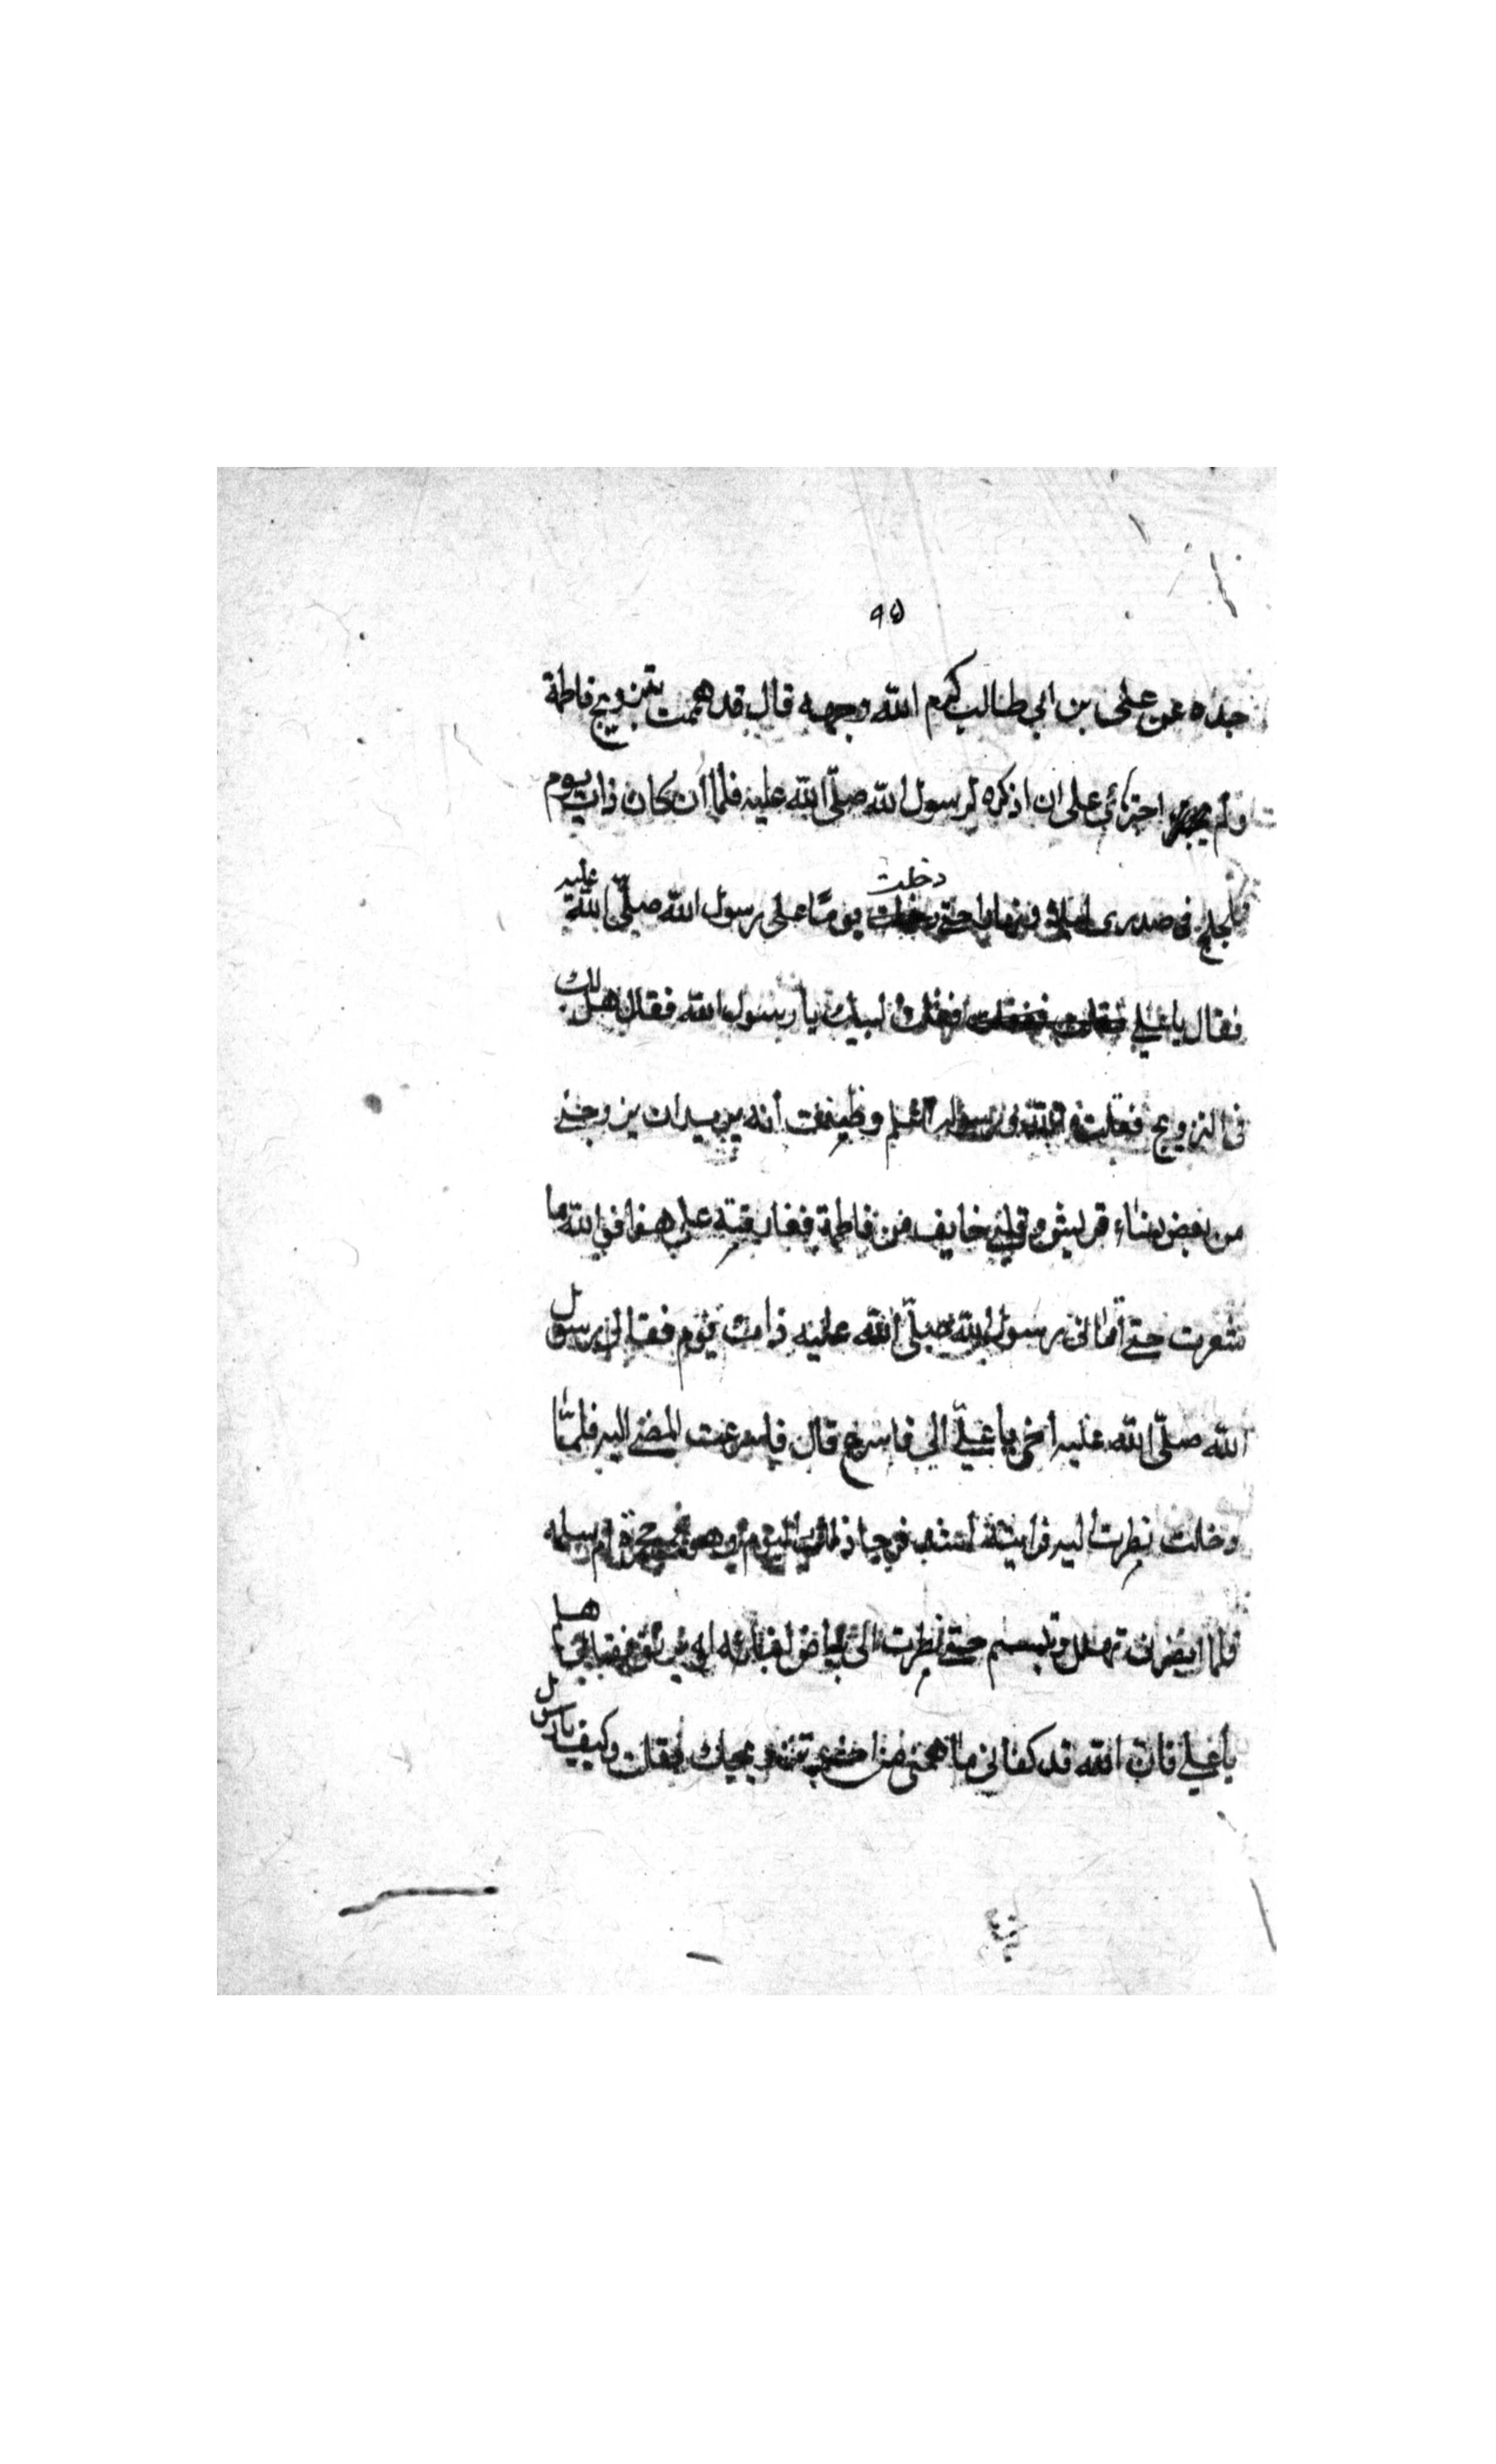 ٩٥
جده عن علي بن ابي طالب كرم الله وجهه قال قد هممت بتزويج فاطمة
ولم اجترئ على ان اذكره لرسول الله صلّى الله عليه فلما أن كان ذات يوم
في صدرى حتى دخلت يومًا على رسول الله صلّى الله عليه
فقال يا علي لبيك يا رسول الله فقال هل لك
فى التزويج فقلت اعلم وظننت أنه يريد ان يزوجنى
من بعض نساء قريش وقلبى خايف من فاطمة ففارقته على هذا فوالله ما
شعرت حتى أتانى رسول الله صلّى الله عليه ذات يوم فقال لى رسول
الله صلّى الله عليه يا علىّ الى فاسرع قال فاسرعت المضى اليه فلمّا
دخلت نظرت اليه فرايته اشد ام سلمه
فلما ابصرنى تهلل وتبسم حتى نظرت الى بياض
يا على فان الله قد كفانى ما همنى من تزويجك فقلت وكيف يا رسول